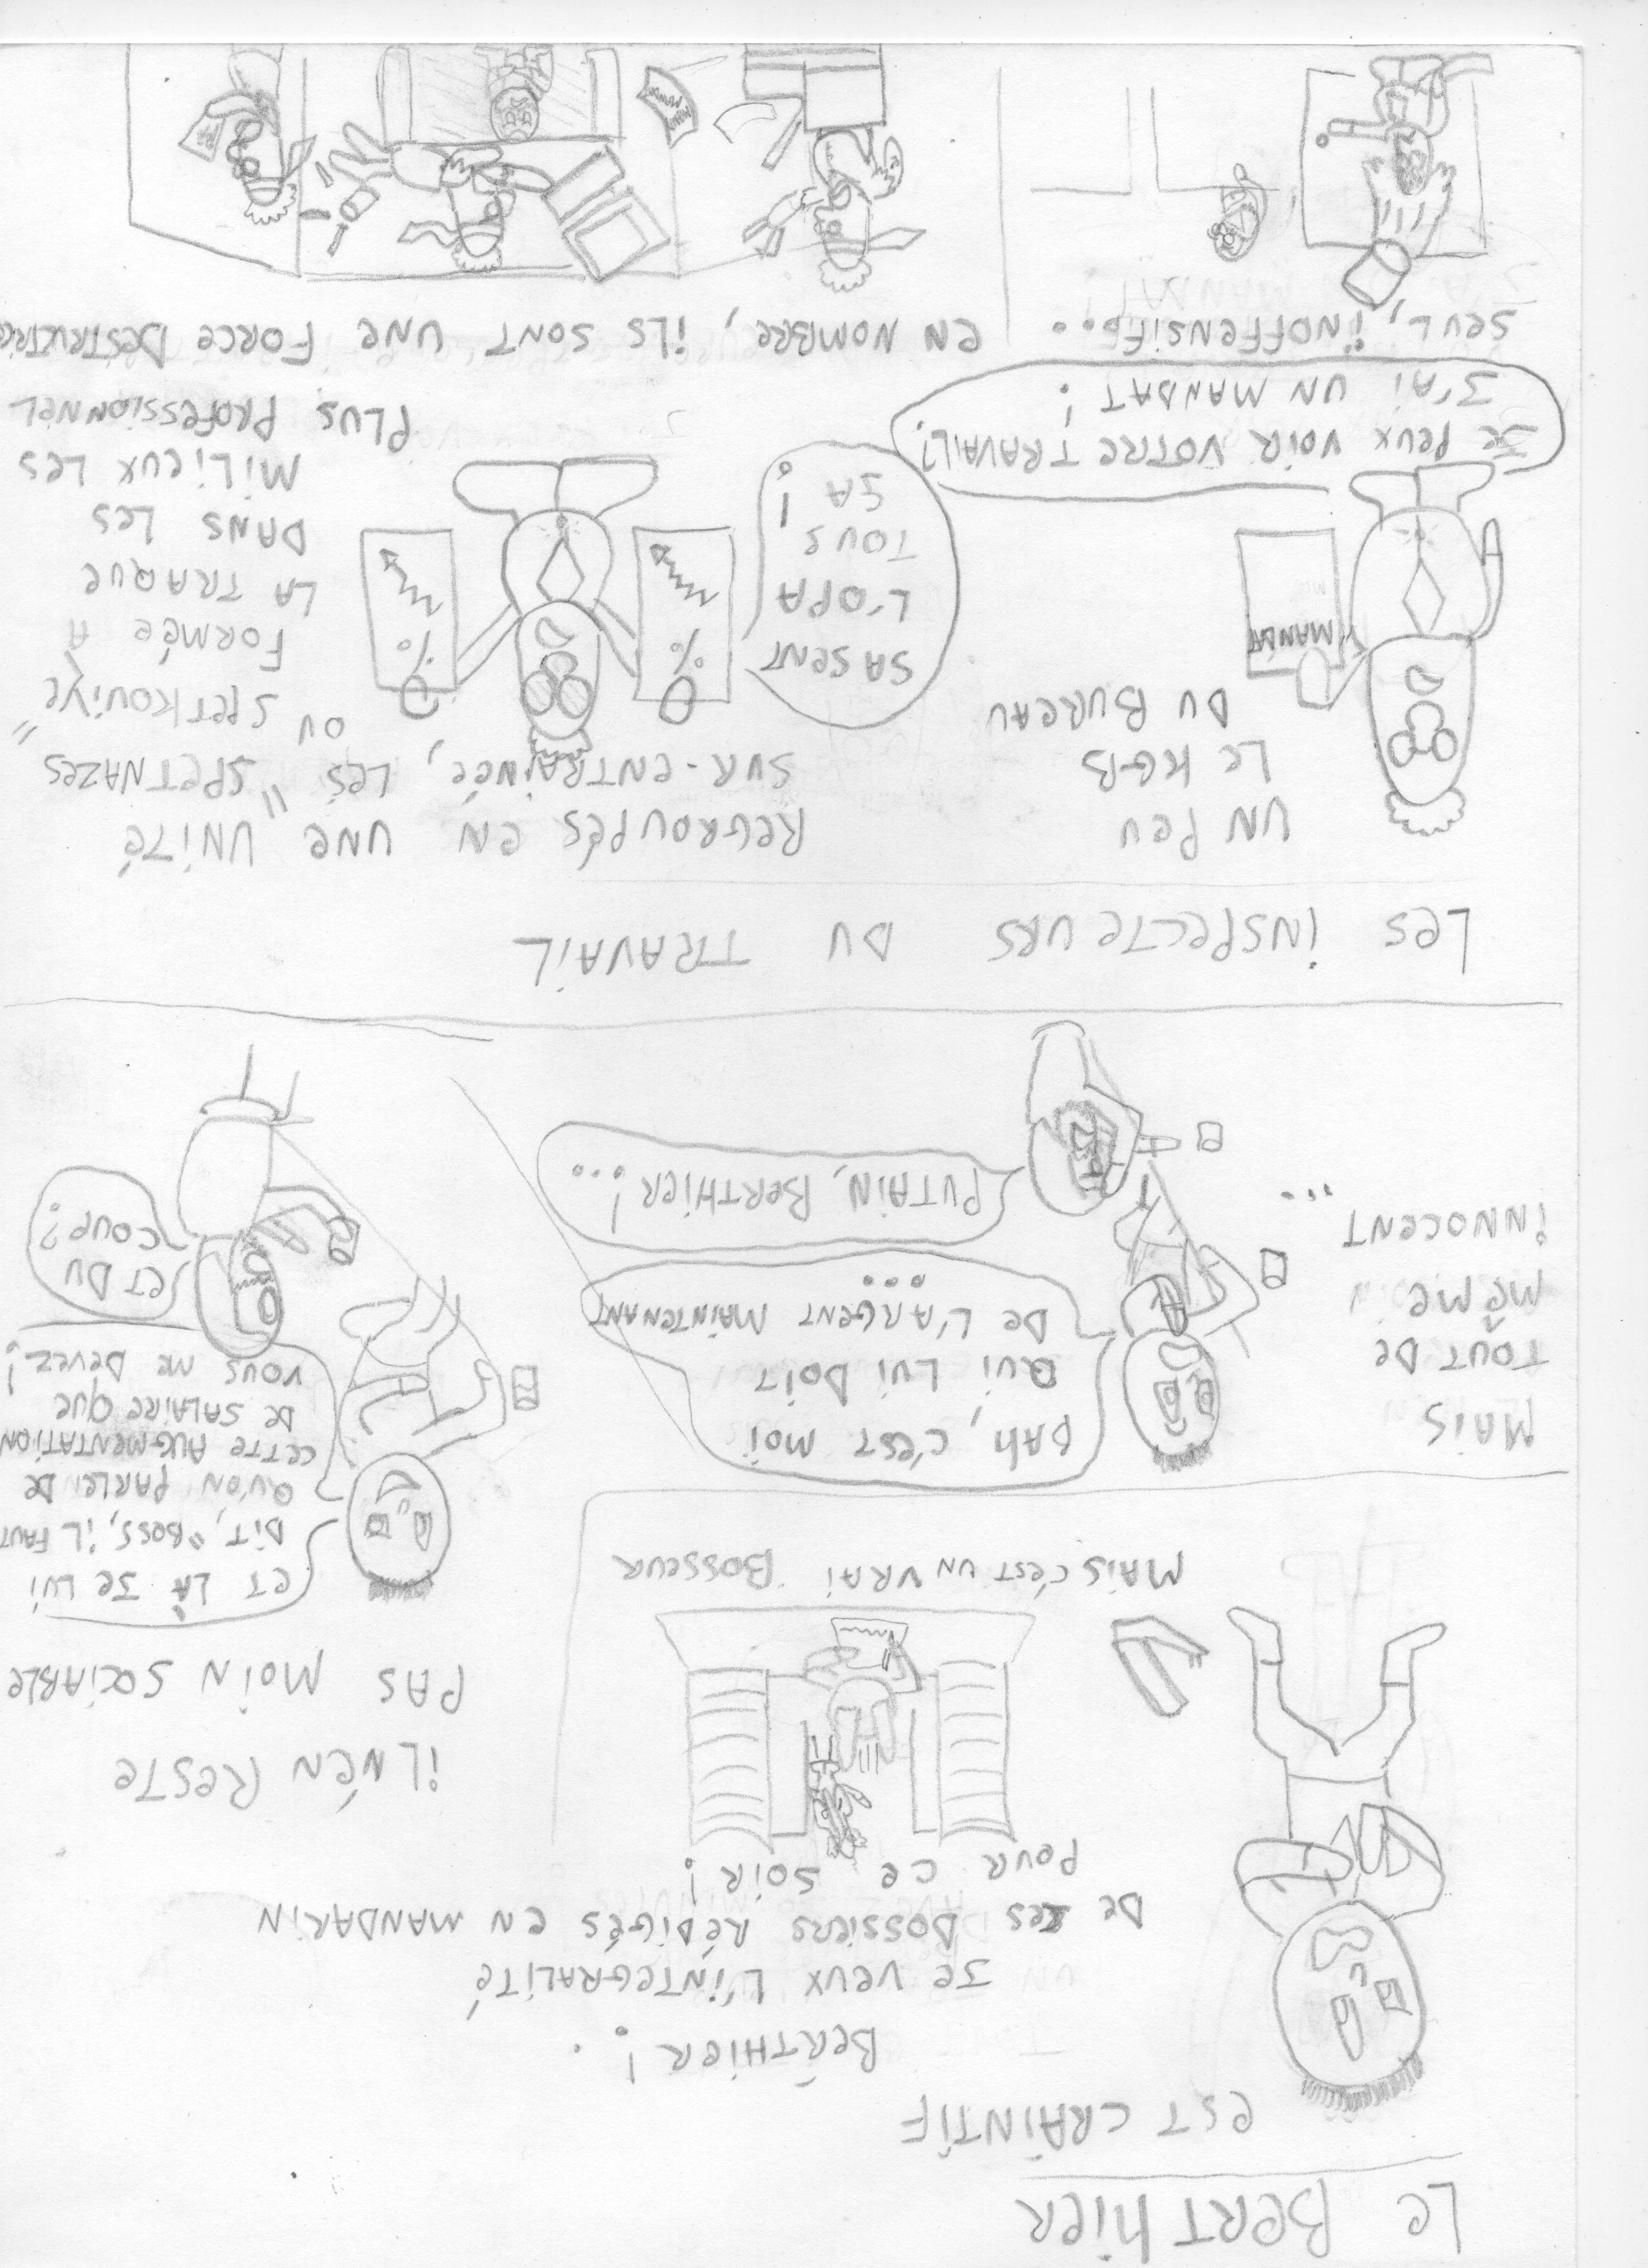 Le BERThieR
EST CRAINTIF
BERTHIER !
JE VEUX L'INTEGRALITÉ
DE CES DOSSIERS RÉDIGÉS EN MANDARIN
POUR CE SOIR !
MAIS C'EST UN VRAI BOSSEUR
IL N'EN RESTE
PAS MOIN SOCIABLE
ET LÀ JE LUI
DIT, "BOSS, IL FAUT
QU'ON PARLE DE
CETTE AUGMENTATION
DE SALAIRE QUE
VOUS ME DEVEZ !
ET DU
COUP ?
MAIS
TOUT DE
MÊME
INNOCENT
...
BAH, C'EST MOI
QUI LUI DOIT
DE L'ARGENT MAINTENANT
...
PUTAIN, BERTHIER !...
LES INSPECTEURS DU TRAVAIL
UN PEU
LE KGB
DU BUREAU
MANDAT
JE PEUX VOIR VOTRE TRAVAIL ?
J'AI UN MANDAT !
REGROUPÉS EN UNE UNITÉ
SUR-ENTRAINÉE, LES "SPETNAZES
OU SPETKOUIYE"
FORMÉE A
LA TRAQUE
DANS LES
MILIEUX LES
PLUS PROFESSIONNEL
SA SENT
L'OPA
TOUT
ÇA !
%
%
SEUL, INOFFENSIF..
EN NOMBRE, ILS SONT UNE FORCE DESTRUCTRICE
MANDAT